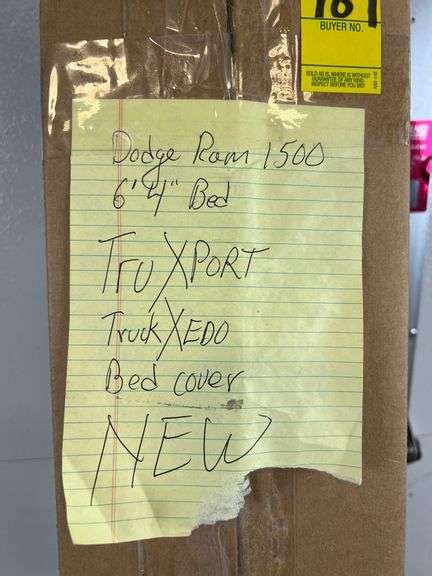 BUYER NO.
SOLD AS IS, WHERE IS WITHOUT
GUARANTEE OF ANY KIND.
INSPECT BEFORE YOU BID!
Dodge Ram 1500
6'4" Bed
TruXPORT
TruckXEDO
Bed cover
NEW